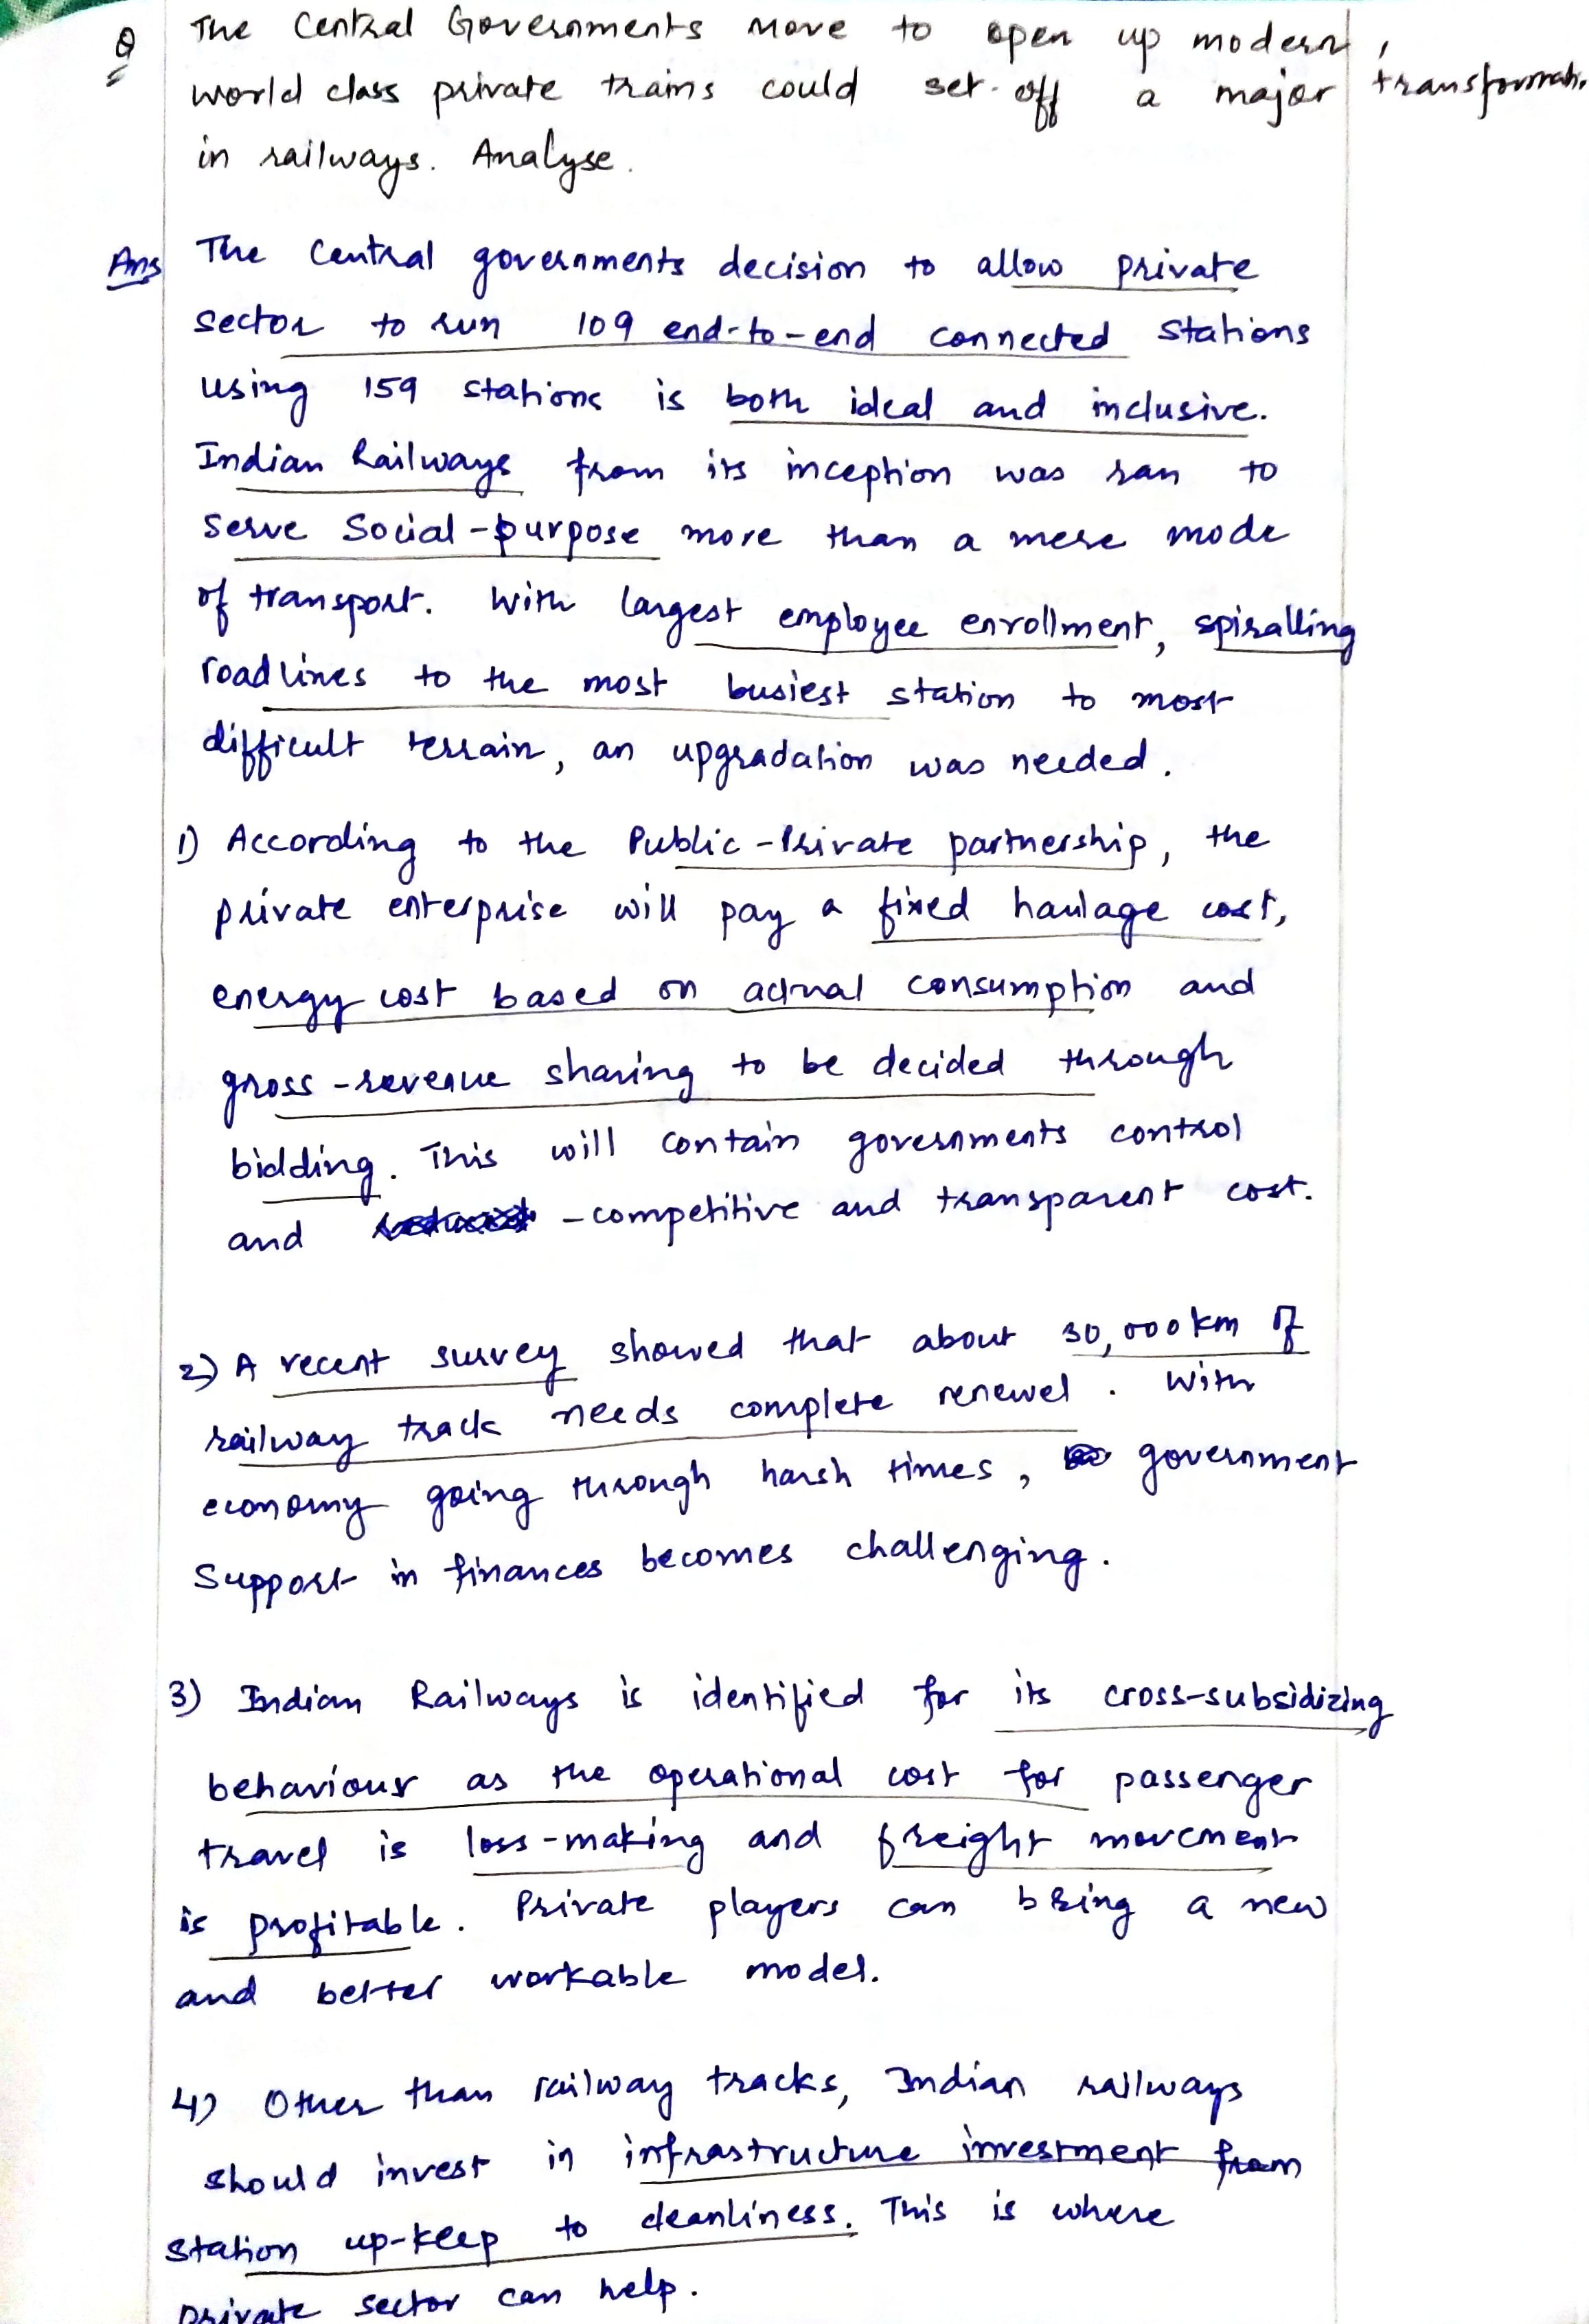 Q The Central Governments move to open up modern,
world class private trains could set-off a major transformati
in railways. Analyse.
Ans The Central governments decision to allow private
sector to run 109 end-to-end connected stations
using 159 stations is both ideal and inclusive.
Indian Railways from its inception was ran to
serve Social-purpose more than a mere mode
of transport. With largest employee enrollment, spiralling
roadlines to the most busiest station to most
difficult terrain, an upgradation was needed.
1) According to the Public-Private partnership, the
private enterprise will pay a fixed haulage cost,
energy cost based on actual consumption and
gross-revenue sharing to be decided through
bidding. This will contain governments control
and -competitive and transparent cost.
2) A recent survey showed that about 30,000km of
railway track needs complete renewel. With
economy going through harsh times, government
Support in finances becomes challenging.
3) Indian Railways is identified for its cross-subsidizing
behaviour as the operational cost for passenger
travel is loss-making and freight movement
is profitable. Private players can bring a new
and better workable model.
4) Other than railway tracks, Indian railways
should invest in infrastructure investment from
station up-keep to cleanliness. This is where
private sector can help.